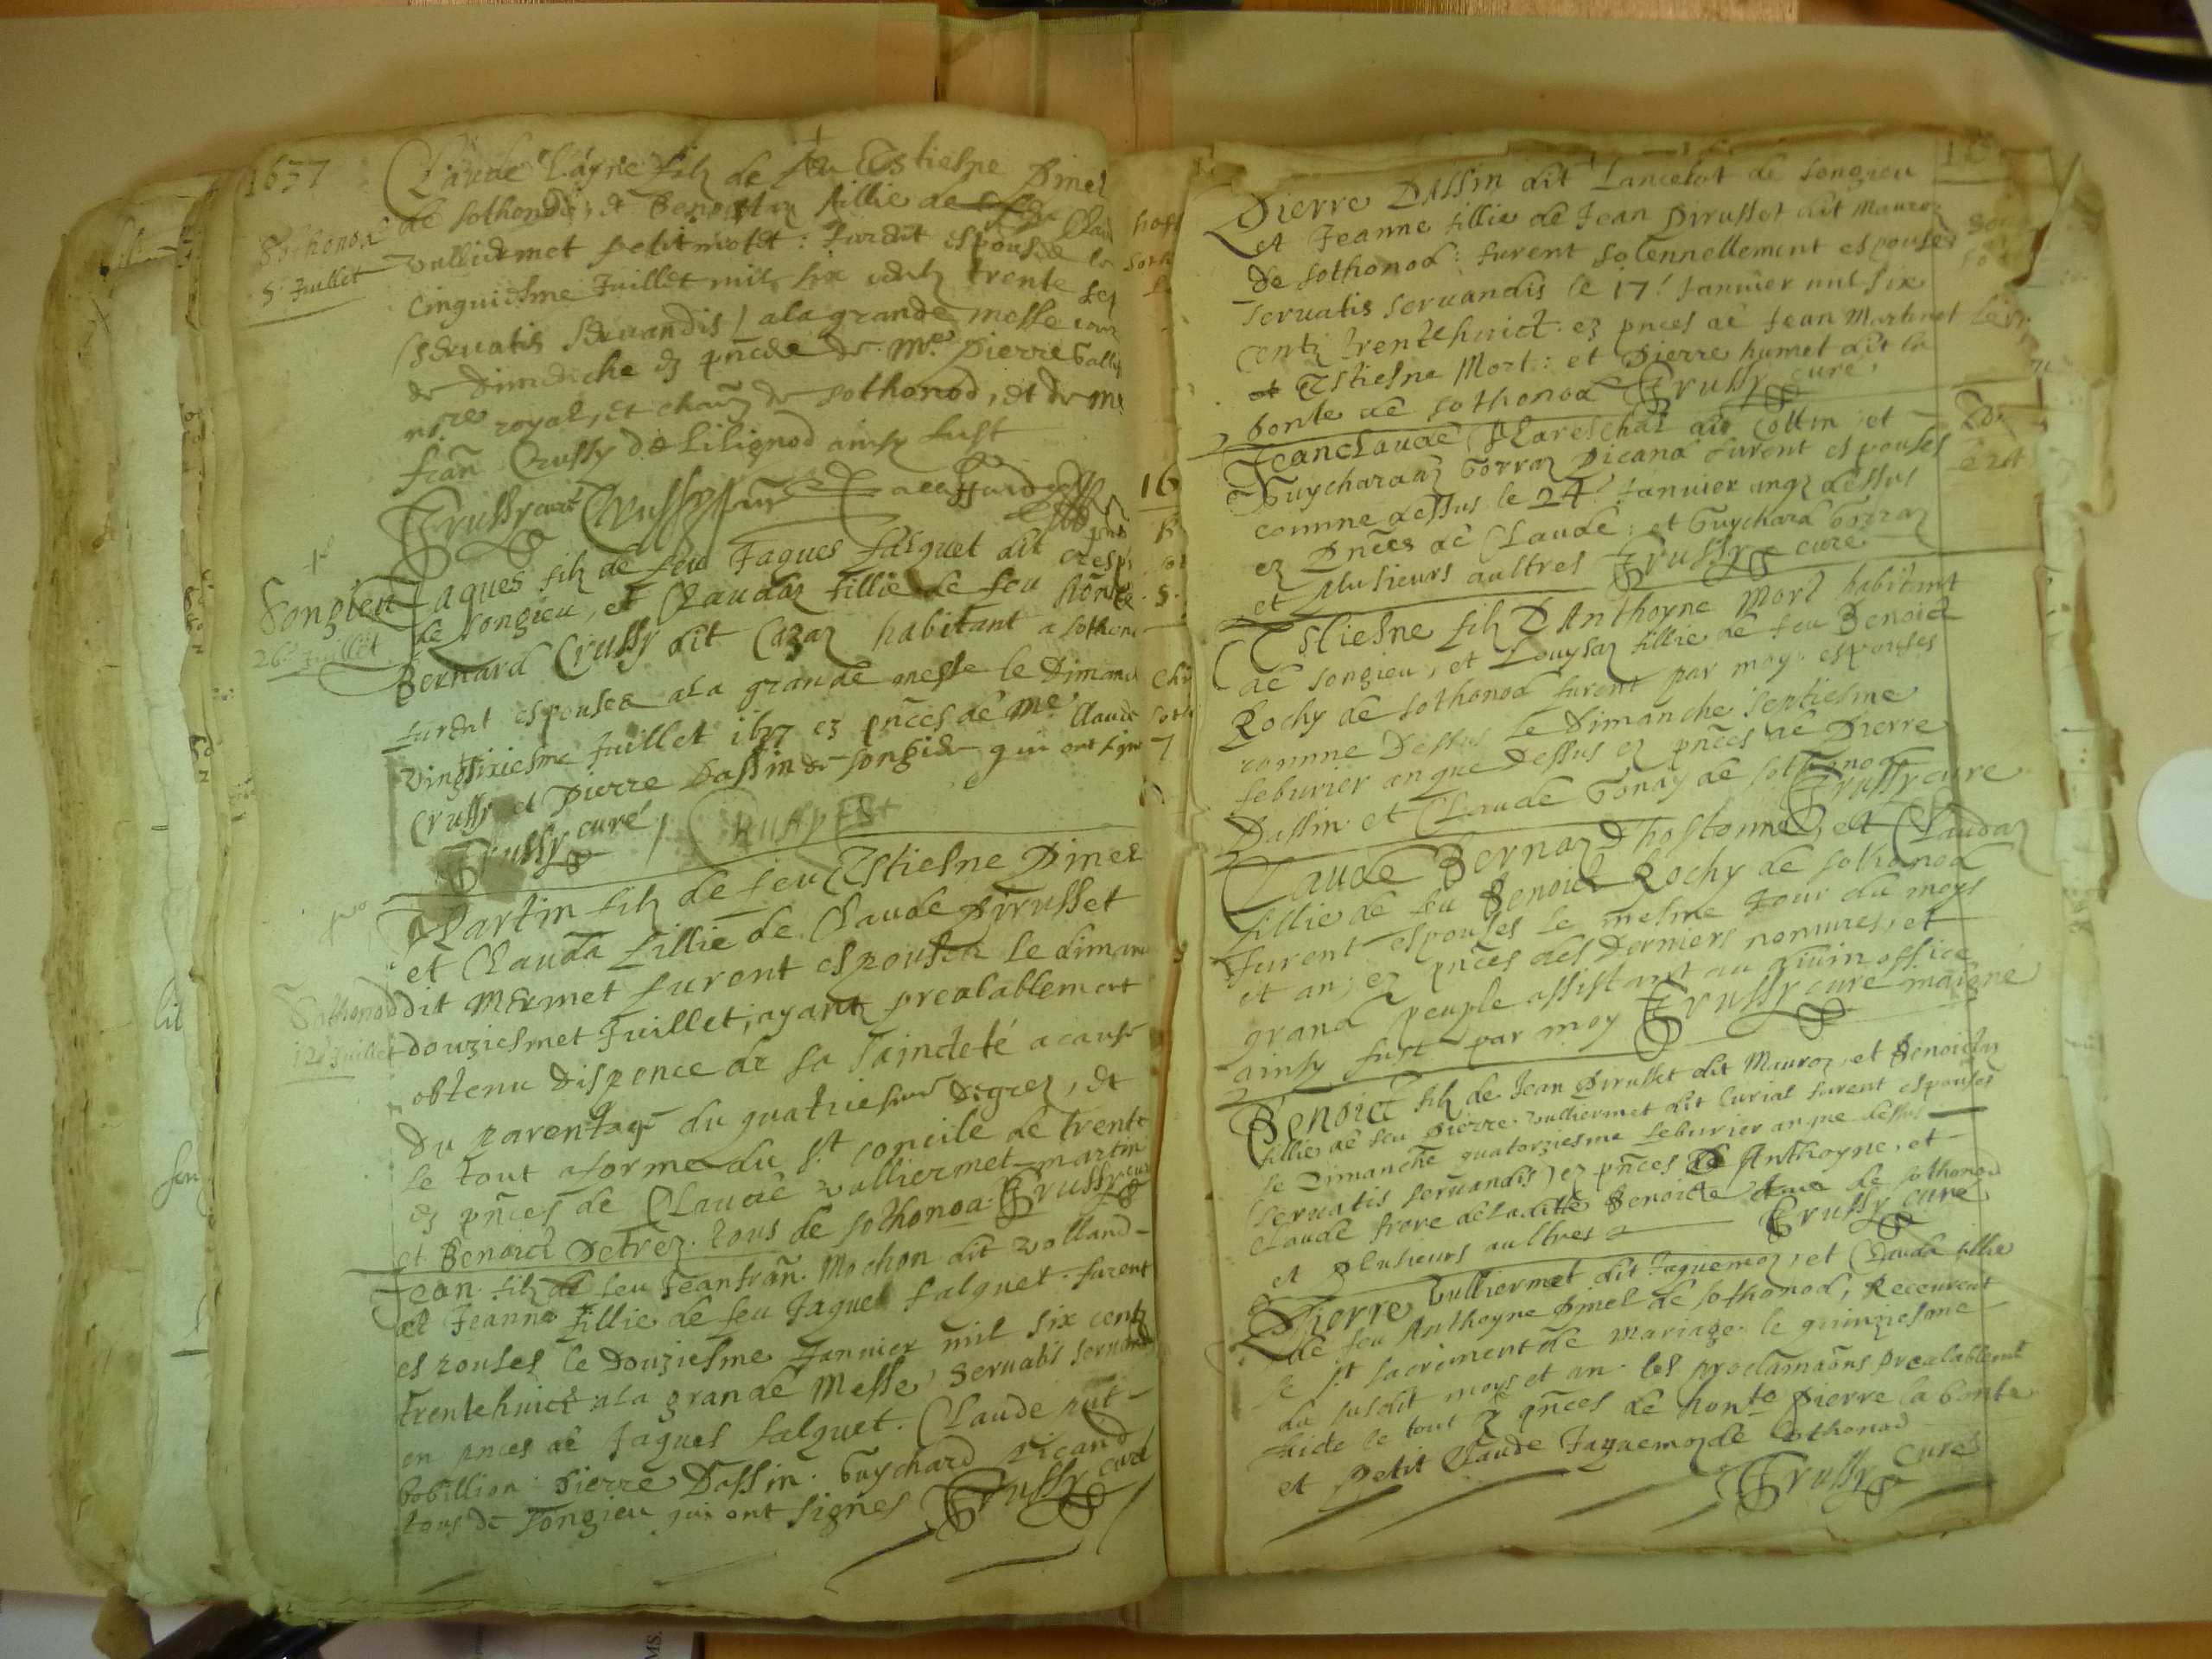 1637
Claude Layné filz de feu Estiesne Pinel
de sothonod, et Benoistaz fillie de Claude
Sothonod
5e Juillet
vulliermet petit molet: furent espousés le
cinquiesme Juillet mil six centz trente sep
(servatis servandis) a la grande messe
de dimenche ez pnces de Me. Pierre Galli
nore royal, et chan de sothonod, et de Me
fran Crussy de Lilignod ainsy fust
Trussy curé Crussy
Songieu
26e Juillet
Jaques filz de feu Jaques falquet dit
de songieu, et Claudaz fillie de feu honte
Bernard Crussy dit Cazaz habitant a sothono
furent espouses a la grande messe le dimanc
vingtsixiesme Juillet 1637 ez pnces de Me Claude
Crussy et Pierre Dassin de songieu qui ont signé
Trussy curé / Crussy
Martin filz de feu Estiesne Pinel
et Clauda fillie de Claude Pirusset
Sothonod
dit Mermet furent espousez le diman
12e Juillet
douziesmet Juillet, ayantz prealablement
obtenu dispence de sa saincteté a cause
du parentage du quatriesme degrez, et
le tout a forme du st. concile de trente
ez pnces de Claude vulliermet martin
et Benoict Detrez tous de sothonod. Trussy curé
Jean filz de feu Jeanfran. Mochon dit volland
et Jeanne fillie de feu Jaques falquet. furent
espouses le douziesme Janvier mil six centz
trentehuict a la grande Messe, servatis servandis
en pnces de Jaques falquet. Claude
bobillion. Pierre Dassin. Guychard Picand
tous de songieu qui ont signes Trussy curé
Pierre Dassin dit Lancelot de songieu
et Jeanne fillie de Jean Pirusset dit Mauroz
de sothonod: furent solennellement espouses
servatis servandis le 17e. Janvier mil six
centz trentehuict. ez pnces de Jean Martinet
et Estiesne Mort: et Pierre humet dit la
bonte de sothonod Trussy curé
Jeanclaude Mareschal dit Collin et
Guychardaz Gorraz Picand furent espouses
comme dessus le 24e. Janvier anq dessus
ez pnces de Claude: et Guychard Gorraz
et plusieurs aultres Trussy curé
Estiesne filz D'Anthoyne Mort habitant
de songieu, et Louysaz fillie de feu Benoict
Rochy de sothonod furent par moy espouses
comme dessus le dimanche septiesme
feburier an que dessus ez pnces de Pierre
Dassin et Claude Gonay de sothonod
Trussy curé
Claude Bernaz d'hostonne, et Claudaz
fillie de feu Benoict Rochy de sothonod
furent espouses le mesme jour du moys
et an, ez pnces des derniers nommes, et
grand peuple assistant au divin office
ainsy fust par moy Trussy curé
Benoict filz de Jean Pirusset dit Mauroz, et Benoictaz
fillie de feu Pierre vulliermet dit Curial furent espouses
le dimanche quatorziesme feburier an que dessus
(servatis servandis) ez pnces de Anthoyne, et
Claude frere de laditte Benoicte de sothonod
et plusieurs aultres Trussy curé
Pierre vulliermet dit Jaquemoz, et Clauda fillie
de feu Anthoyne Pinel de sothonod, Receurent
le st. sacrement de mariage le quinziesme
du susdit moys et an. les proclamaons prealablement
faicte le tout ez pnces de honte Pierre la bonte
et petit Claude Jaquemoz de sothonod
Trussy curé